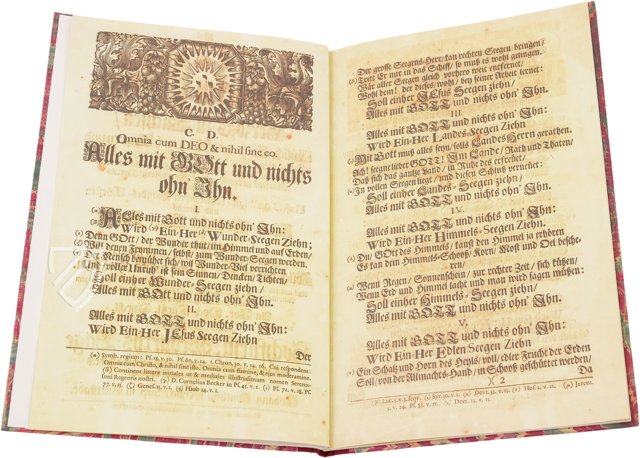 C. D.
Omnia cum DEO & nihil sine eo.
Alles mit GOtt und nichts
ohn Ihn.
I.
Alles mit Gott und nichts ohn' Ihn:
Wird Ein-Her Wunder-Seegen Ziehn;
Denn GOtt/ der Wunder thut/ im Himmel und auf Erden/
Will denn Frommen/ selbst/ zum Wunder-Seegen werden.
Der Mensch bemühet sich/ viel Wunder-Viel verrichten
Und voller Unruh' ist sein Sinnen/ Dencken/ Tichten/
Soll einher Wunder-Seegen ziehn/
Alles mit GOtt und nichts ohn' Ihn.
II.
Alles mit GOTT und nichts ohn' Ihn:
Wird Ein-Her JEsus Seegen Ziehn
Der
Symb. regium: Ps. 18. v. 30. Ps. 60. v. 14. 1. Chron. 30. v. 14. 16. Cui respondet:
Omnia cum Christo, & nihil sine isto. Omnia cum fautine, & ejus moderamine.
Continent litteræ initiales ut & mediales illustrissimum nomen Serenis-
simi Regentis nostri. D. Cornelius Becker
77. v. 15. Genes. 15. v. 1. Hiob 14. v. 1.
Der grosse Seegens-Herr/ kan rechten Seegen bringen/
Tritt Er nur in das Schiff/ so muß es wohl gelingen.
Wär aller Seegen gleich vorhero weit entfernet/
Wohl dem! der dieses/ wohl/ bey seiner Arbeit lernet:
Soll einher JEsus Seegen ziehn/
Alles mit GOTT und nichts ohn' Ihn.
III.
Alles mit GOTT und nichts ohn' Ihn:
Wird Ein-Her Landes-Seegen Ziehn.
Mit Gott muß alles seyn/ solls Landes Herrn gerathen.
Ach! segne lieber GOTT! Ihn/ Lande/ Rath und Thaten/
Daß sich das gantze Land/ in Ruhe des erfreuet/
In vollen Seegen liegt/ und diesen Schluß erneuet:
Soll einher Landes-Seegen ziehn/
Alles mit GOTT und nichts ohn' Ihn.
IV.
Alles mit GOTT und nichts ohn' Ihn:
Wird Ein-Her Himmels-Seegen Ziehn.
Du/ GOtt des Himmels/ kanst den Himmel so erhören
Es kan dem Himmels-Schooß/ Korn/ Most und Oel beschee-
ren/
Wenn Regen/ Sonnenschein/ zur rechter Zeit/ sich küßen:
Wenn Erd und Himmel lacht und man wird sagen müßen:
Soll einher Himmels-Seegen ziehn/
Alles mit GOTT und nichts ohn' Ihn.
V.
Alles mit GOTT und nichts ohn' Ihn:
Wird Ein-Her Edlen Seegen Ziehn
Ein Schatz und Horn des Heyls/ voll/ edler Frucht der Erden
Soll/ von der Allmachts-Hand/ in Schooß geschüttet werden/
)( 2
Da
Luc. 5. v. 5. seqv.